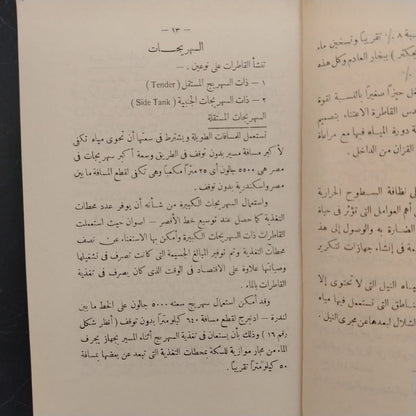 — ١٣ —
السهريجات
تنشأ القاطرات على نوعين . —
١ — ذات السهريج المستقل ( Tender )
٢ — ذات السهريجات الجنبية ( Side Tank )
السهريجات المستقلة
تستعمل للمسافات الطويلة ويشترط فى سعتها أن تحوى مياه تكفى
لأكبر مسافة مسير بدون توقف فى الطريق وسعة أكبر سهريجات فى
مصر هى ٥٥٠٠ جالون أى ٢٥ متراً مكعباً وهى تكفى لقطع المسافة ما بين
مصر واسكندرية بدون توقف .
واستعمال السهريجات الكبيرة من شأنه أن يوفر عدد محطات
التغذية كما حصل عند توسيع خط الأقصر — اسوان حيث استعملت
القاطرات ذات السهريجات الكبيرة وأمكن بها الاستغناء عن نصف
محطات التغذية وتم توفير المبالغ الجسيمة التى كانت تصرف فى تشغيلها
وصيانتها علاوة على الاقتصاد فى الوقت الذى كان يصرف فى تغذية
القاطرات بالماء .
وقد أمكن استعمال سهريج سعته ٥٠٠٠ جالون على الخط ما بين
لندرة — ادنبرج لقطع مسافة ٦٤٠ كيلومتراً بدون توقف ( أنظر شكل
رقم ١٦ ) وذلك بأن يستعان فى تغذية السهريج أثناء المسير بجهاز يجرف
الماء من مجار موازية للسكة بمحطات التغذية التى تبعد عن بعضها بمسافة
٥٠ كيلو متراً تقريباً .
بة ٨ ٪ تقريباً وتسخين ماء
) ببخار العادم وكل هذه
ل حيزاً صغيراً بالنسبة لقوة
دس القاطرة الاعتناء بتصميم
دورة المياه فيها مع مراعاة
القزان من الداخل .
ى نظافة السطوح الحرارية
أهم العوامل التى تؤثر فى حياة
الضارة به والوصول إلى هذ
ة فى إنشاء جهازات لتكرير
ياه النيل التى لا تحتوى إلا
ناطق التى تستعمل فيها مياه
لال لبعدها عن مجرى النيل .